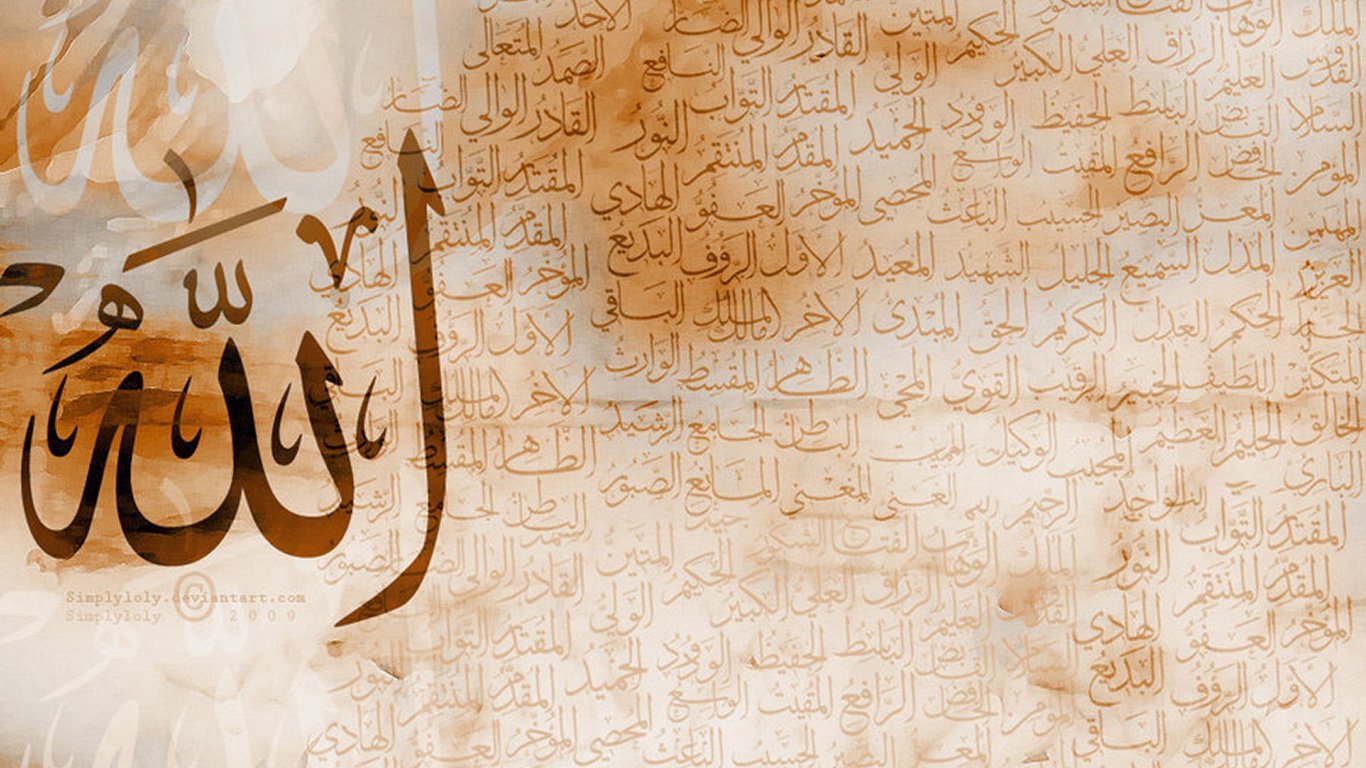 الله
الملك الوهاب الفتاح الشكور المتين الضار الاحد
القدوس الرزاق العلي الكبير الحكيم القادر الوالي المتعالي
العليم الولي النافع الصمد الضار
القابض الباسط الحفيظ الودود الحميد المقتدر التواب القادر الوالي
المؤمن الخافض الرافع المقيت الواسع المقدم المنتقم النور النافع
المهيمن المعز البصير الحسيب الباعث المحصي المؤخر العفو الهادي المقتدر التواب
العزيز المذل السميع الجليل الشهيد المعيد الاول الرؤوف البديع المقدم المنتقم النور
الحكم العدل الكريم الحق المبدئ الاخر مالك الملك الباقي المؤخر العفو الهادي
المتكبر اللطيف الخبير الرقيب القوي المحيي الظاهر المقسط الوارث الاول الرؤوف البديع
الخالق الحليم العظيم المجيب الوكيل المميت الباطن الجامع الرشيد الاخر مالك الملك
البارئ الواجد الرحيم الغني المغني المانع الصبور الظاهر المقسط
المقتدر التواب الملك الوهاب الفتاح الشكور المتين الباطن الرشيد
المقدم المنتقم النور العليم الرزاق العلي الكبير الحكيم الولي القادر الوالي الصبور
المؤخر العفو الهادي القابض الباسط الحفيظ الودود الحميد المقتدر التواب
الاول الرؤوف البديع المؤمن الخافض الرافع المقيت الواسع المقدم المنتقم النور
الاخر مالك الملك الباقي الحسيب الباعث المحصي المؤخر العفو الهادي
Simplyloly.deviantart.com
Simplyloly © 2009